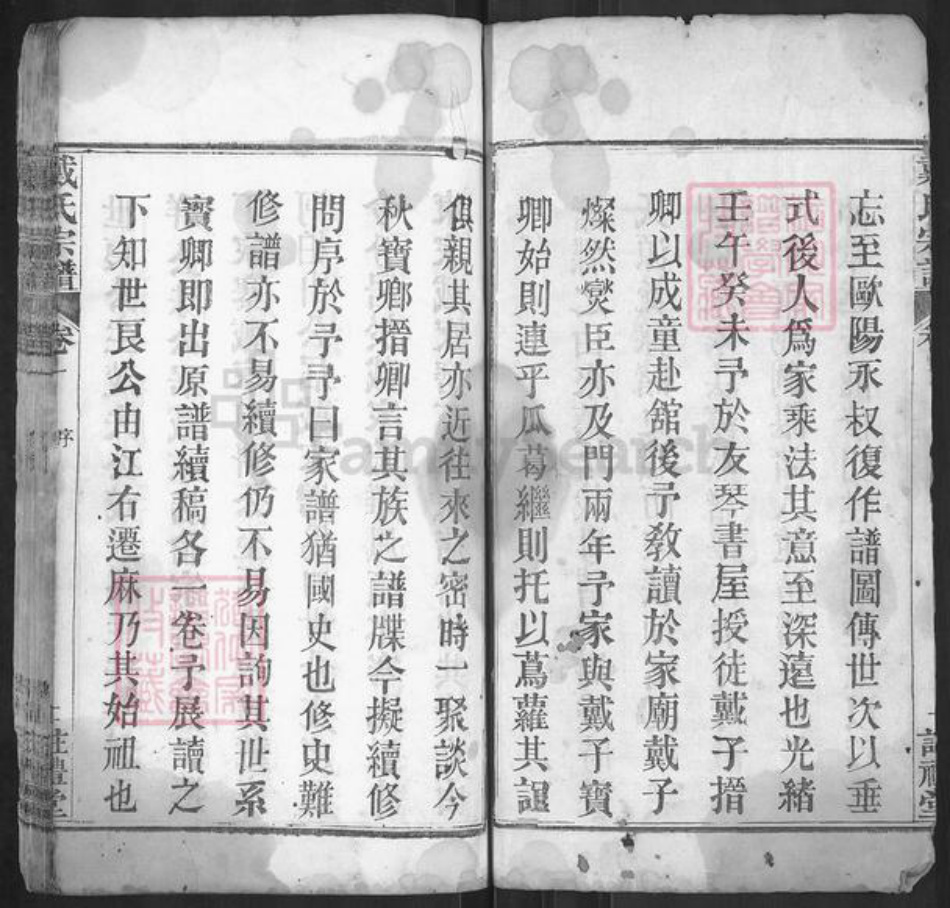 志至歐陽永权復作譜圖傳世次以垂
式後人爲家乘法其意至深遠也光緒
壬午癸未予於友琴書屋授徒戴子搢
卿以成童赴舘後予敎讀於家廟戴子
燦然爕臣亦及門兩年予家與戴子寳
卿始則連乎瓜葛繼則托以蔦蘿其誼
俱親其居亦近往來之密時一聚談今
秋寳鄉搢卿言其族之譜牒今擬續修
問序於予予曰家譜猶國史也修史難
修譜亦不易續修仍不易因詢其世系
寳卿卽出原譜續稿各一卷予展讀之
下知世良公由江右遷麻乃其始祖也
戴氏宗譜
卷一
序
二
註禮堂